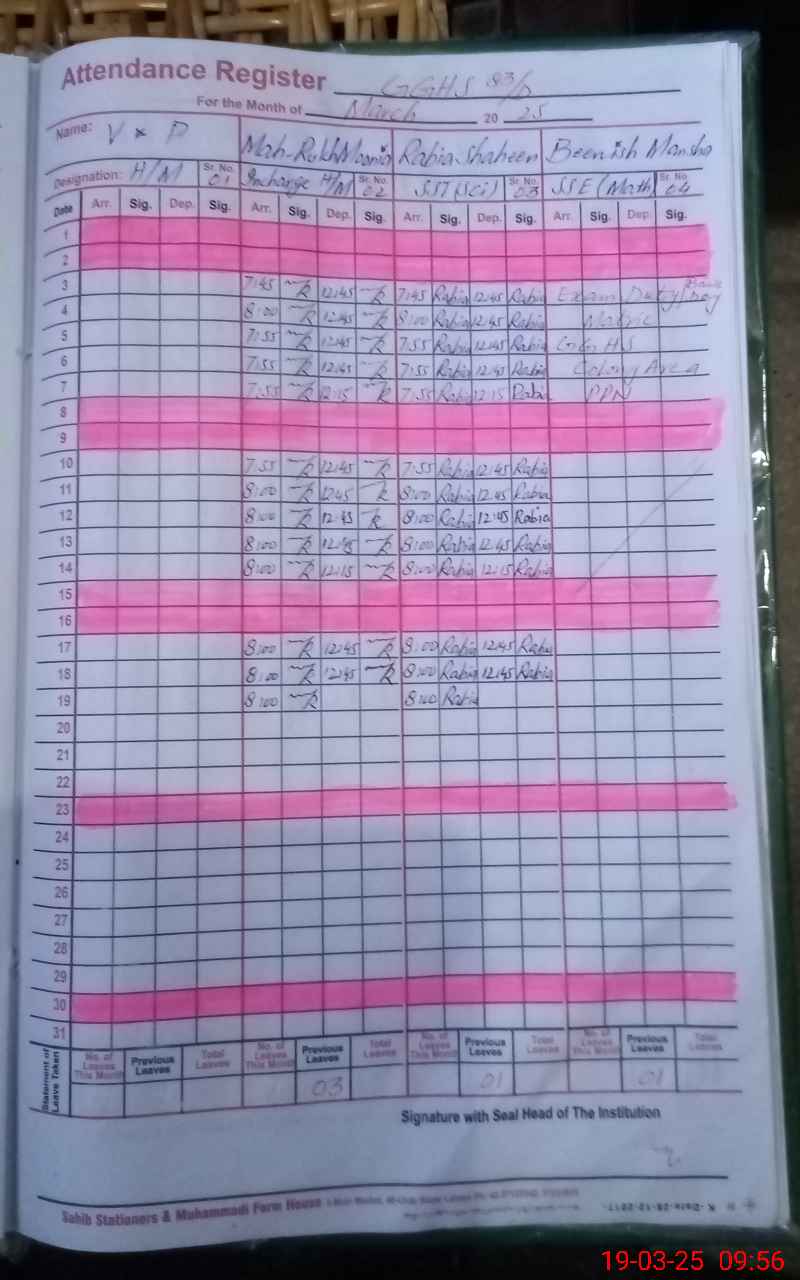 Attendance Register GGHS 83/D
For the Month of March 20 25
Name: V x P Mah-Rukh Moonis Rabia Shaheen Beenish Mansha
Designation: H/M Sr. No. 01 Incharge H/M Sr. No. 02 SST (Sci) Sr. No. 03 SSE (Math) Sr. No. 04
Date Arr. Sig. Dep. Sig. Arr. Sig. Dep. Sig. Arr. Sig. Dep. Sig. Arr. Sig. Dep. Sig.
1
2
3 7:45 12:45 7:45 Rabia 12:45 Rabia Exam Duty/
4 8:00 12:45 8:00 Rabia 12:45 Rabia Matric
5 7:55 12:45 7:55 Rabia 12:45 Rabia GGHS
6 7:55 12:45 7:55 Rabia 12:45 Rabia Colony Area
7 7:55 12:15 7:55 Rabia 12:15 Rabia PPN
8
9
10 7:55 12:45 7:55 Rabia 12:45 Rabia
11 8:00 12:45 8:00 Rabia 12:45 Rabia
12 8:00 12:45 8:00 Rabia 12:45 Rabia
13 8:00 12:45 8:00 Rabia 12:45 Rabia
14 8:00 12:15 8:00 Rabia 12:15 Rabia
15
16
17 8:00 12:45 8:00 Rabia 12:45 Rabia
18 8:00 12:45 8:00 Rabia 12:45 Rabia
19 8:00 8:00 Rabia
20
21
22
23
24
25
26
27
28
29
30
31
Statement of Leave Taken No. of Leaves This Month Previous Leaves Total Leaves No. of Leaves This Month Previous Leaves Total Leaves No. of Leaves This Month Previous Leaves Total Leaves No. of Leaves This Month Previous Leaves Total Leaves
03 01 01
Signature with Seal Head of The Institution
Sahib Stationers & Muhammadi Form House
19-03-25 09:56